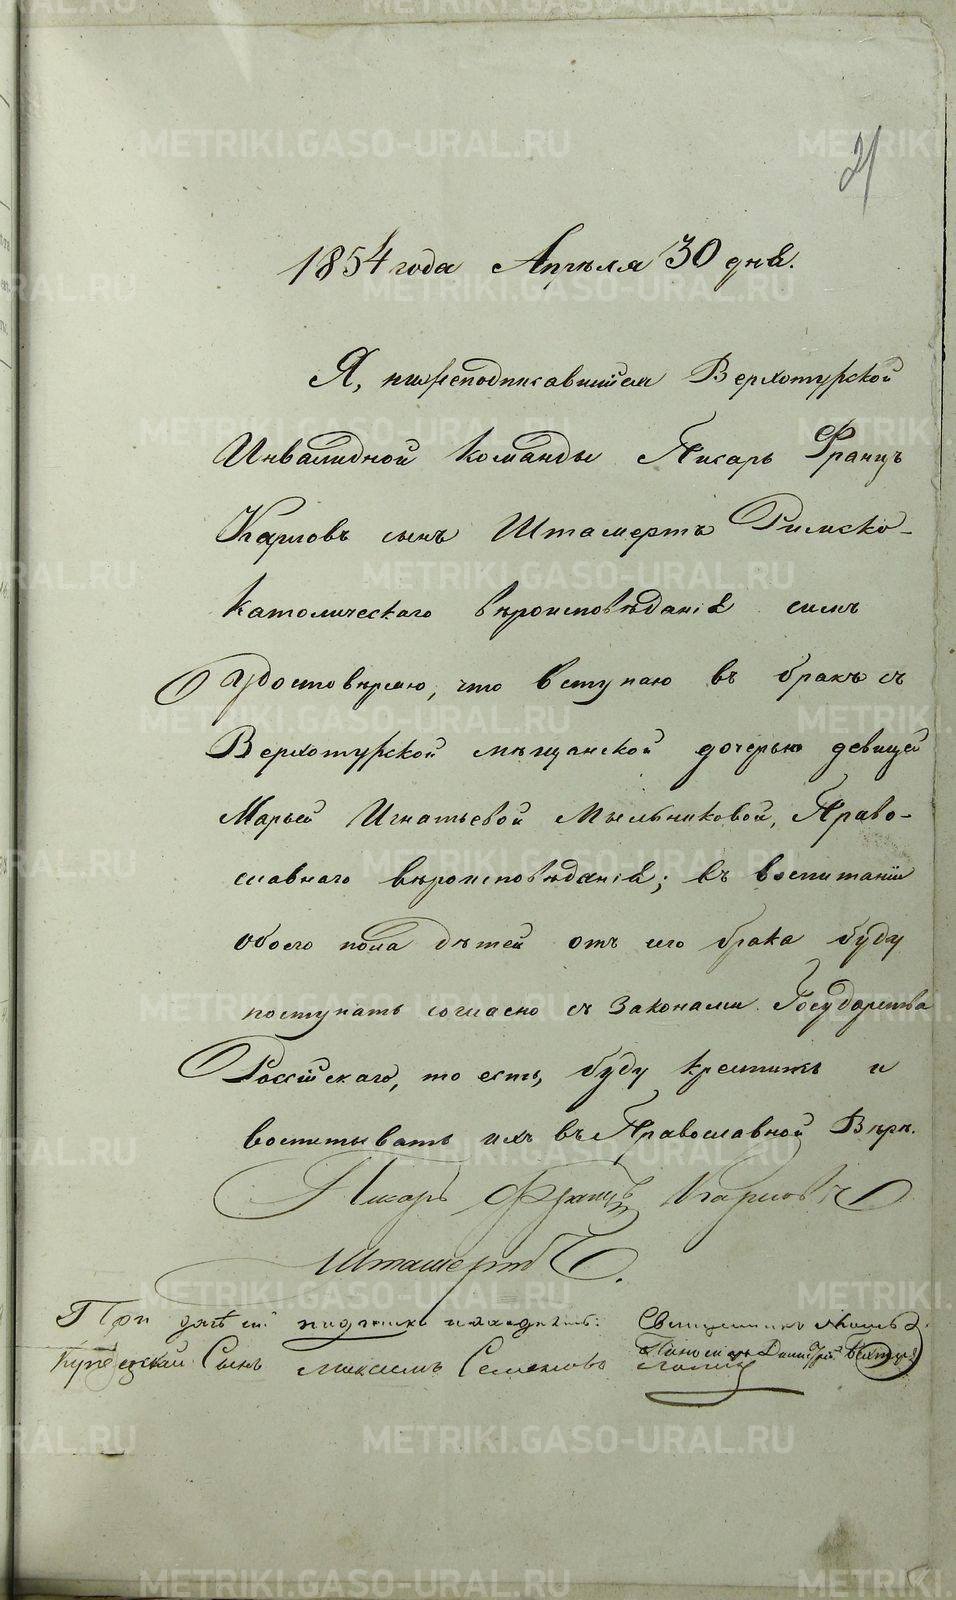 21
1854 года Апрѣля 30 дня.
Я, нижеподписавшійся Верхотурской
Инвалидной команды Писарь Францъ
Карловъ сынъ Штамертъ Римско-
католическаго вѣроисповѣданія симъ
удостовѣряю, что вступаю въ бракъ съ
Верхотурской мѣщанской дочерью девицей
Марьей Игнатьевой Мыльниковой, Право-
славнаго вѣроисповѣданія; въ воспитаніи
обоего пола дѣтей отъ сего брака буду
поступать согласно съ Законами Государства
Россійскаго, то есть, буду крестить и
воспитывать ихъ въ Православной Вѣрѣ.
Писарь Францъ Карловъ
Штамертъ.
При дачѣ сей подписки находились: Священникъ
Купеческій Сынъ Максимъ Семеновъ Пономарь
METRIKI.GASO-URAL.RU